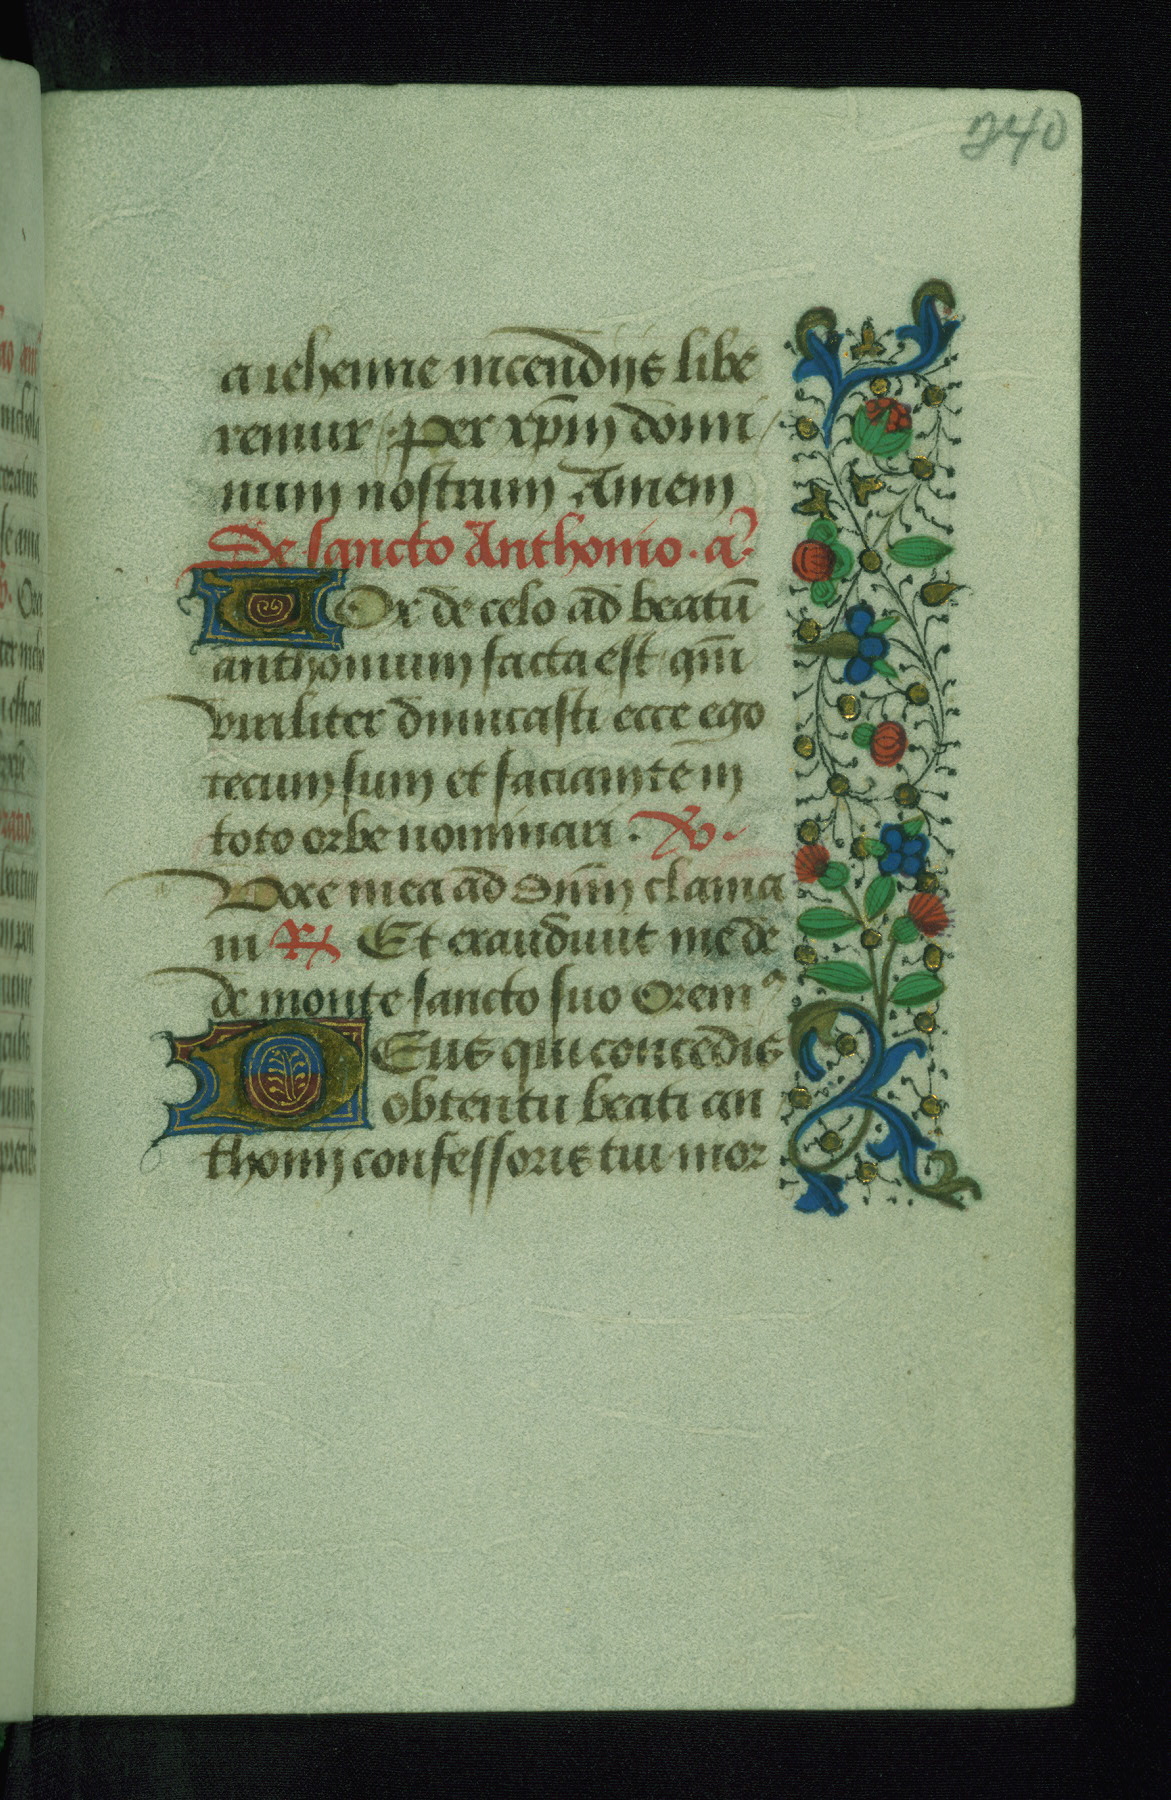 240
a iehenne incendijs libe
remur · per xp̄m domi
num nostrum Amen
De sancto Anthonio · a͛·
Vox de celo ad beatū
anthonium facta est qm̄
viriliter dimicasti ecce ego
tecum sum et faciam te in
toto orbe nominari · V̷ ·
Voce mea ad dn̄m clama
ui R̷ Et exaudiuit me de
de monte sancto suo Orem⁹
DEus qui concedis
obtentu beati an
thonij confessoris tui mor